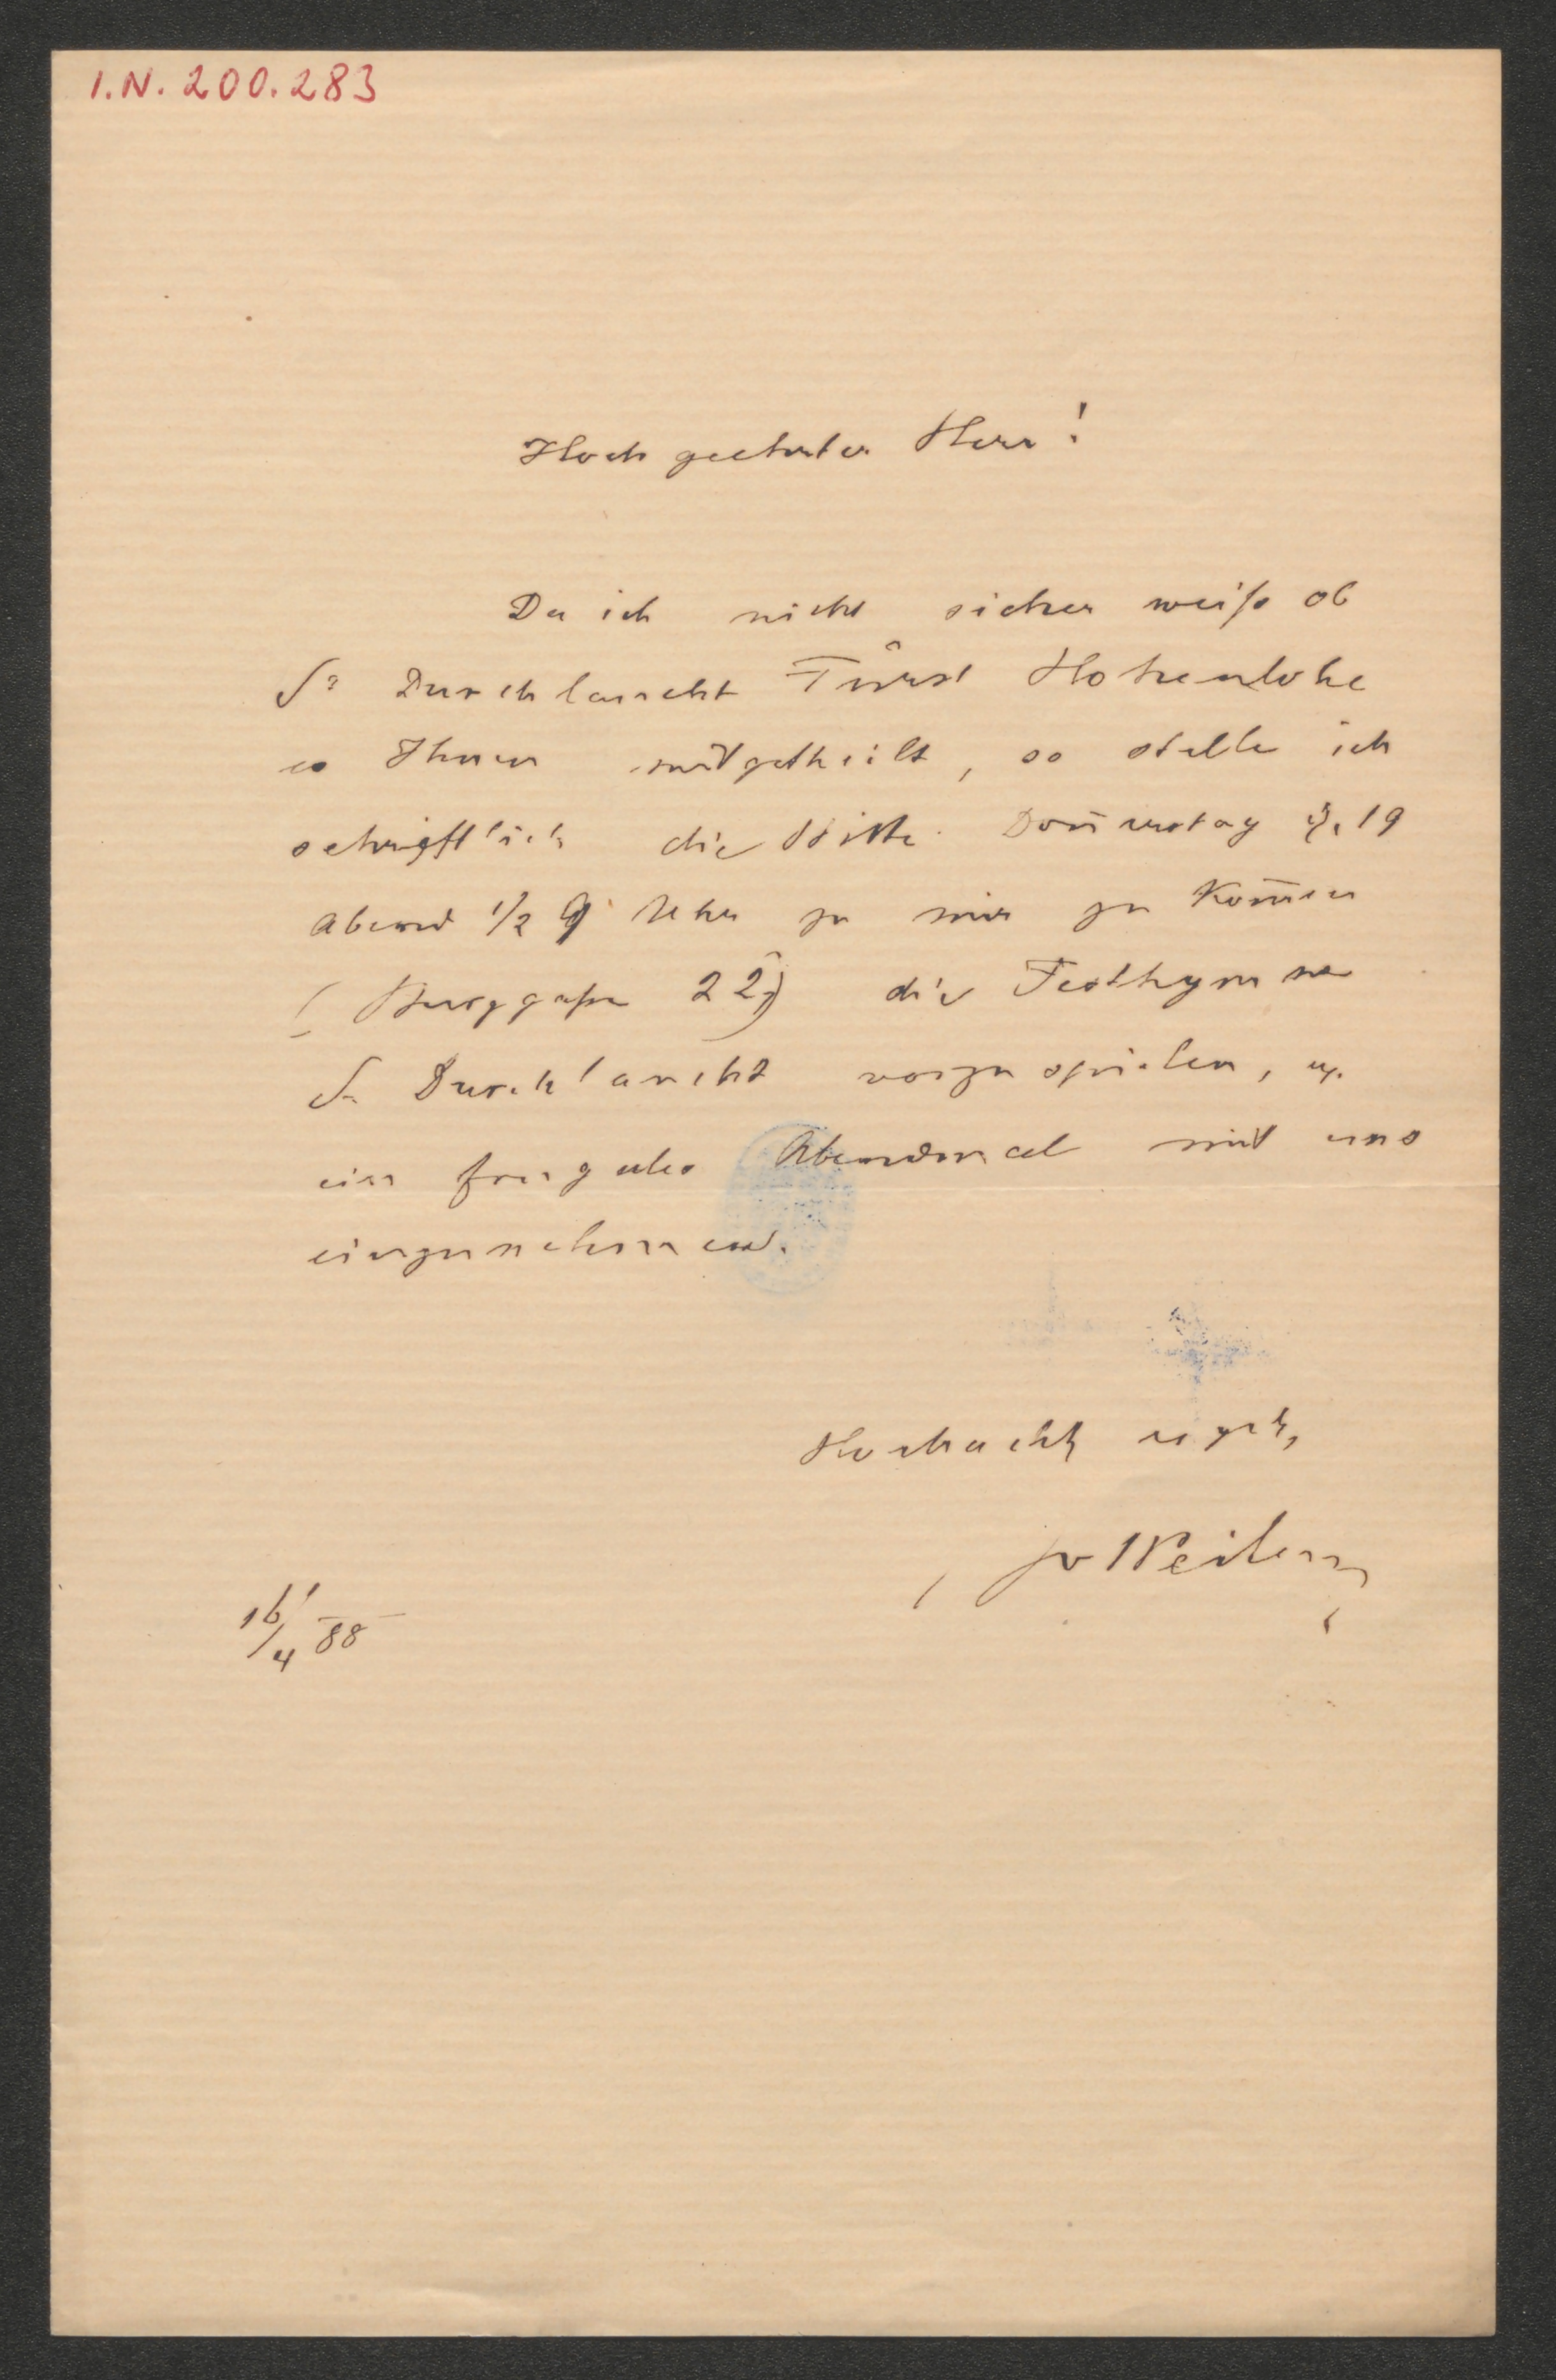 I.N. 200.283
Hochgeehrter Herr!
Da ich nicht sicher weiß ob
Sr Durchlaucht Fürst Hohenlohe
es Ihnen mitgetheilt, so stelle ich
schriftlich die Bitte Don̄erstag d. 19
Abend 1/2 9 Uhr zu mir zu kom̄en
(Burggaße 22) die Festhymne
Sr Durchlaucht vorzuspielen, u.
ein frugales Abendmal mit uns
einzunehmen.
Hochachtungsv.
JvWeilen
16/4 88